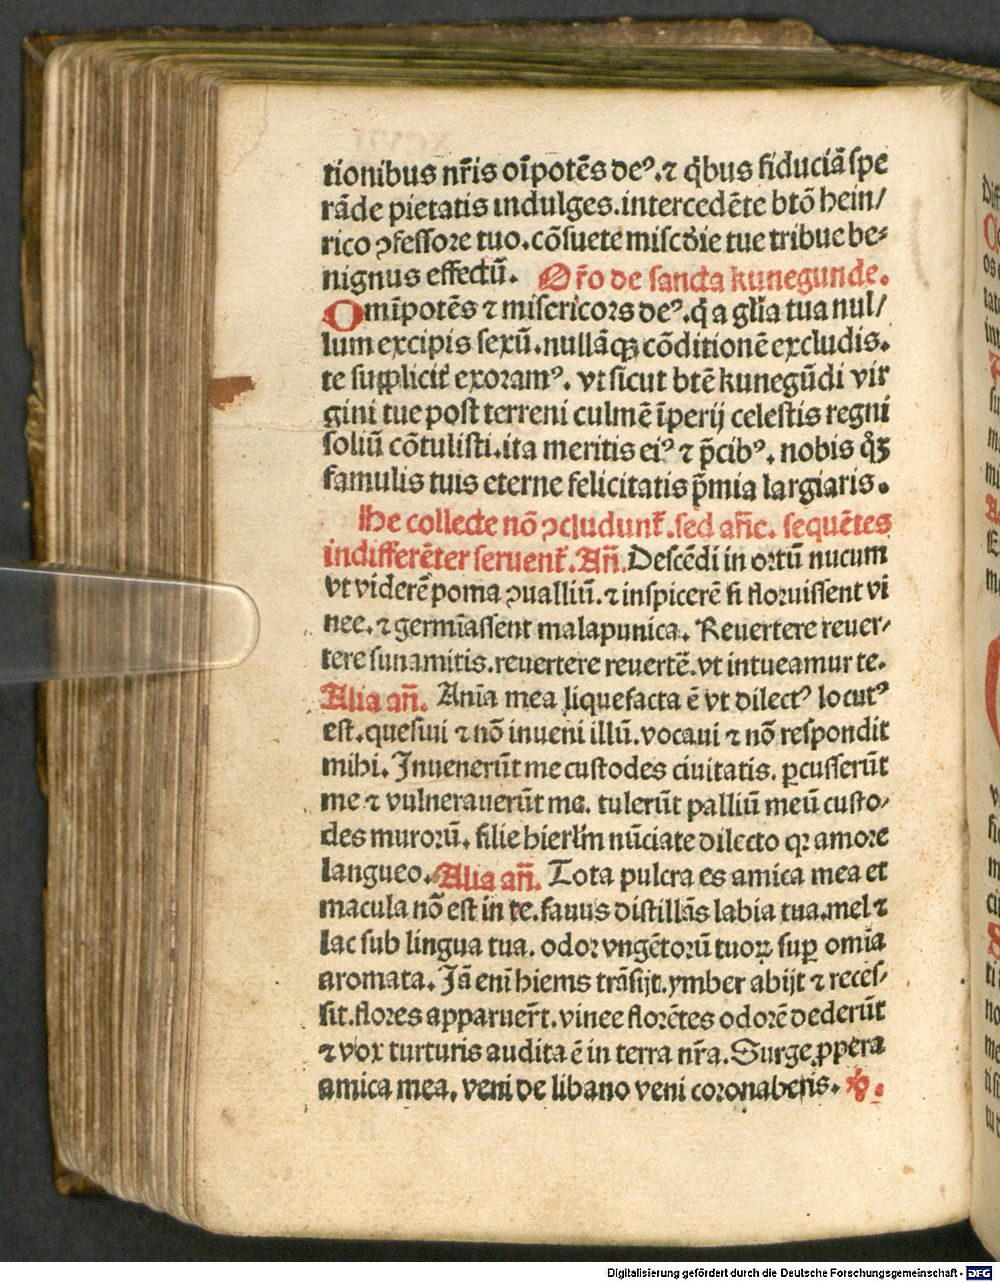 tionibus nr̄is oīpotēs deꝰ.⁊ q̄bus fiduciā spe
rāde pietatis indulges.intercedēte btō hein/
rico ꝯfessore tuo.cōsuete misc̄die tue tribue be-
nignus effectū. Or̄o de sancta kunegunde.
Omīpotēs ⁊ misericors deꝰ.q̄ a gl̄ia tua nul/
lum excipis sexū.nullāqꝫ cōditionē excludis.
te supplicit̄ exoramꝰ. vt sicut btē kunegūdi vir
gini tue post terreni culmē īperij celestis regni
soliū cōtulisti.ita meritis eiꝰ ⁊ p̄cibꝰ. nobis qͦꝫ
famulis tuis eterne felicitatis p̄mia largiaris.
He collecte nō ꝯcludunt̄.sed añe. sequētes
indifferēter seruent̄.Añ.Descēdi in ortū nucum
vt viderē poma ꝯualliū.⁊ inspicerē si floruissent vi
nee.⁊ germīassent malapunica. Reuertere reuer-
tere sunamitis.reuertere reuertē.vt intueamur te.
Alia añ. Anīa mea liquefacta ē vt dilectꝰ locutꝰ
est.quesiui ⁊ nō inueni illū.vocaui ⁊ nō respondit
mihi. Inuenerūt me custodes ciuitatis. ꝑcusserūt
me ⁊ vulnerauerūt me. tulerūt palliū meū custo-
des murorū. filie hierl̄m nūciate dilecto qꝛ amore
langueo. Alia añ. Tota pulcra es amica mea et
macula nō est in te.fauus distillās labia tua.mel ⁊
lac sub lingua tua. odor vngētorū tuoꝝ suꝑ omīa
aromata. Jā enī hiems trāsijt.ymber abijt ⁊ reces-
sit.flores apparuer̄t.vinee florētes odorē dederūt
⁊ vox turturis audita ē in terra nr̄a. Surge ꝓpera
amica mea. veni de libano veni coronaberis. ℣.
Digitalisierung gefördert durch die Deutsche Forschungsgemeinschaft - DFG